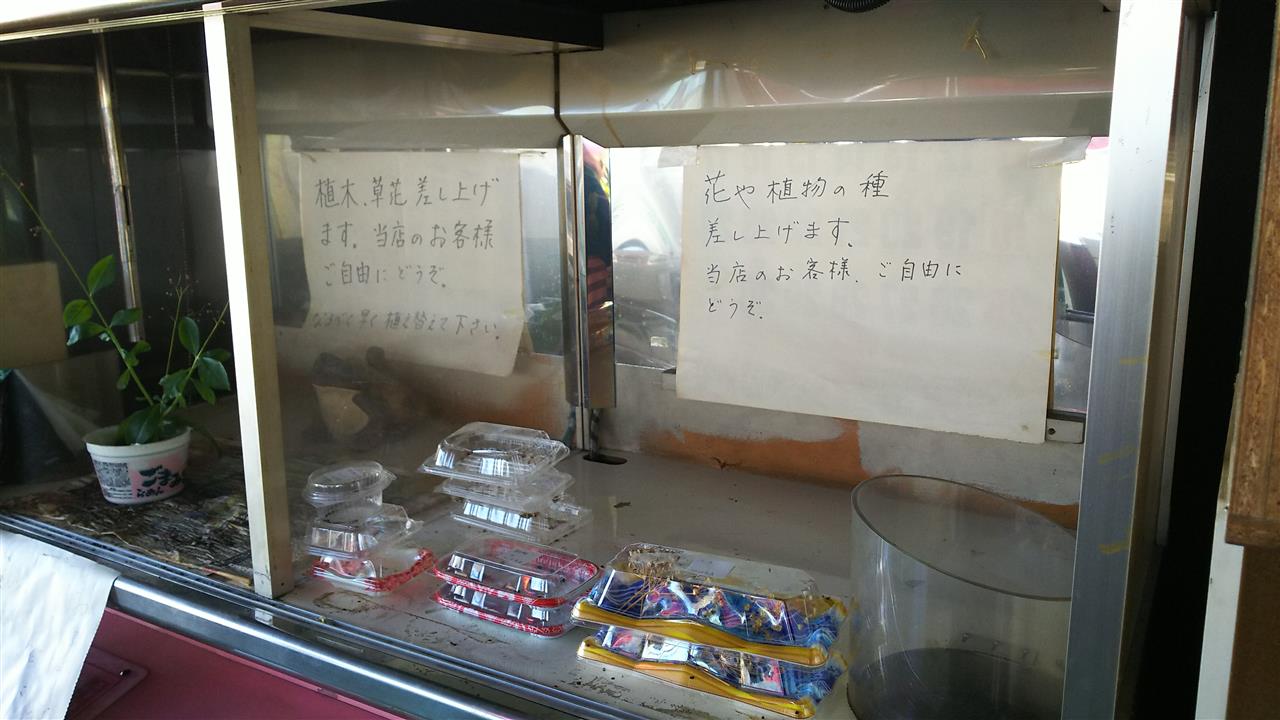 植木、草花差し上げ
ます。当店のお客様
ご自由にどうぞ。
なるべく早く植え替えて下さい。
花や植物の種
差し上げます。
当店のお客様、ご自由に
どうぞ。